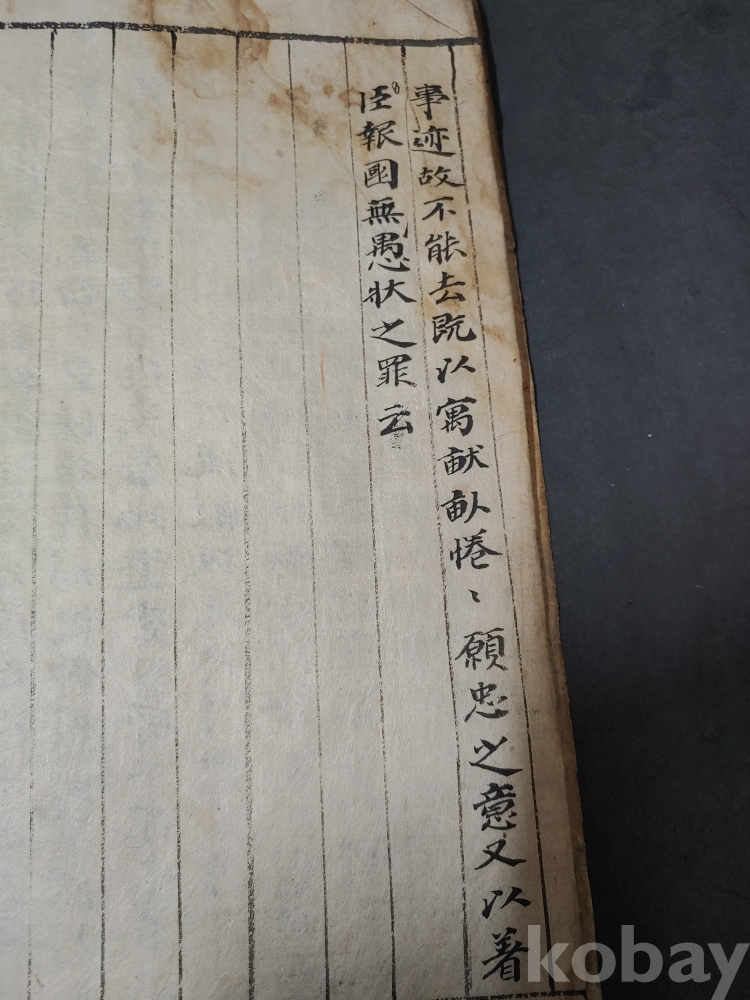 事迹故不能去既以寓献畝惓〻願忠之意又以著
臣報國無愚状之罪云
kobay